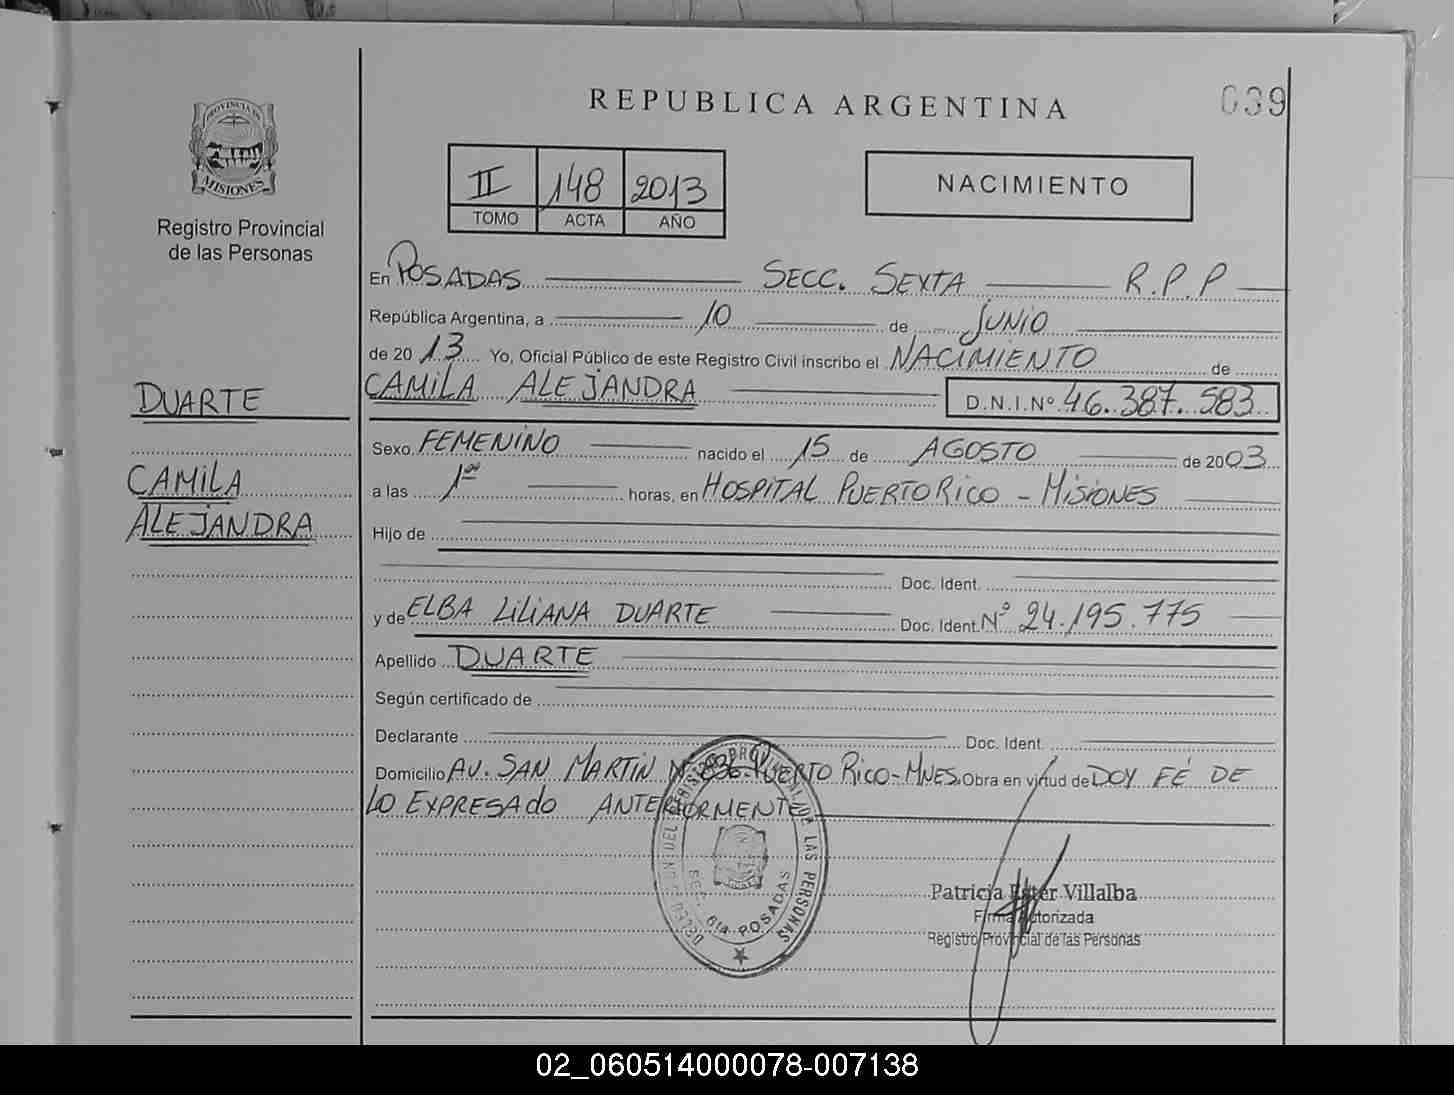 REPUBLICA ARGENTINA
039
PROVINCIA DE
MISIONES
Registro Provincial
de las Personas
II 148 2013
TOMO ACTA AÑO
NACIMIENTO
En POSADAS SECC. SEXTA R.P.P
República Argentina, a 10 de JUNIO
de 2013 Yo, Oficial Público de este Registro Civil inscribo el NACIMIENTO de
CAMILA ALEJANDRA D.N.I.Nº 46.387.583
DUARTE
CAMILA
ALEJANDRA
Sexo FEMENINO nacido el 15 de AGOSTO de 2003
a las 1⁰⁰ horas, en HOSPITAL PUERTO RICO - MISIONES
Hijo de
Doc. Ident.
y de ELBA LILIANA DUARTE Doc. Ident. Nº 24.195.775
Apellido DUARTE
Según certificado de
Declarante Doc. Ident.
Domicilio AV. SAN MARTIN Nº PUERTO RICO-MNES. Obra en virtud de DOY FÉ DE
LO EXPRESADO ANTERIORMENTE
DEL REGISTRO PROVINCIAL DE LAS PERSONAS
SEC. 6ta POSADAS
Patricia Ester Villalba
Firma Autorizada
Registro Provincial de las Personas
02_060514000078-007138